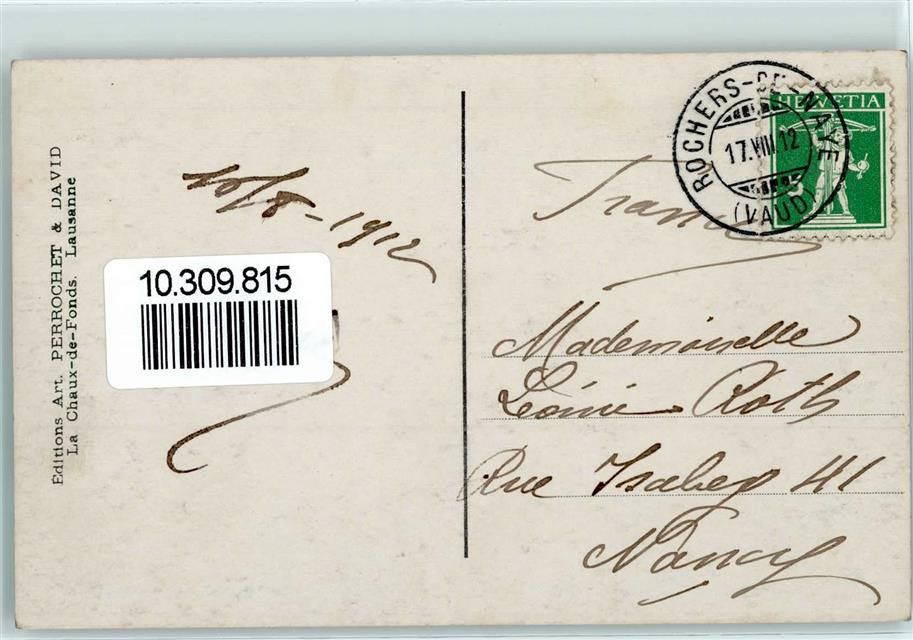 Editions Art. PERROCHET & DAVID
La Chaux-de-Fonds. Lausanne
10/8-1912
10.309.815
ROCHERS-DE-NAYE
17.VIII.12
(VAUD)
HELVETIA
5
France
Mademoiselle
Léonie Roth
Rue Isabey 41
Nancy